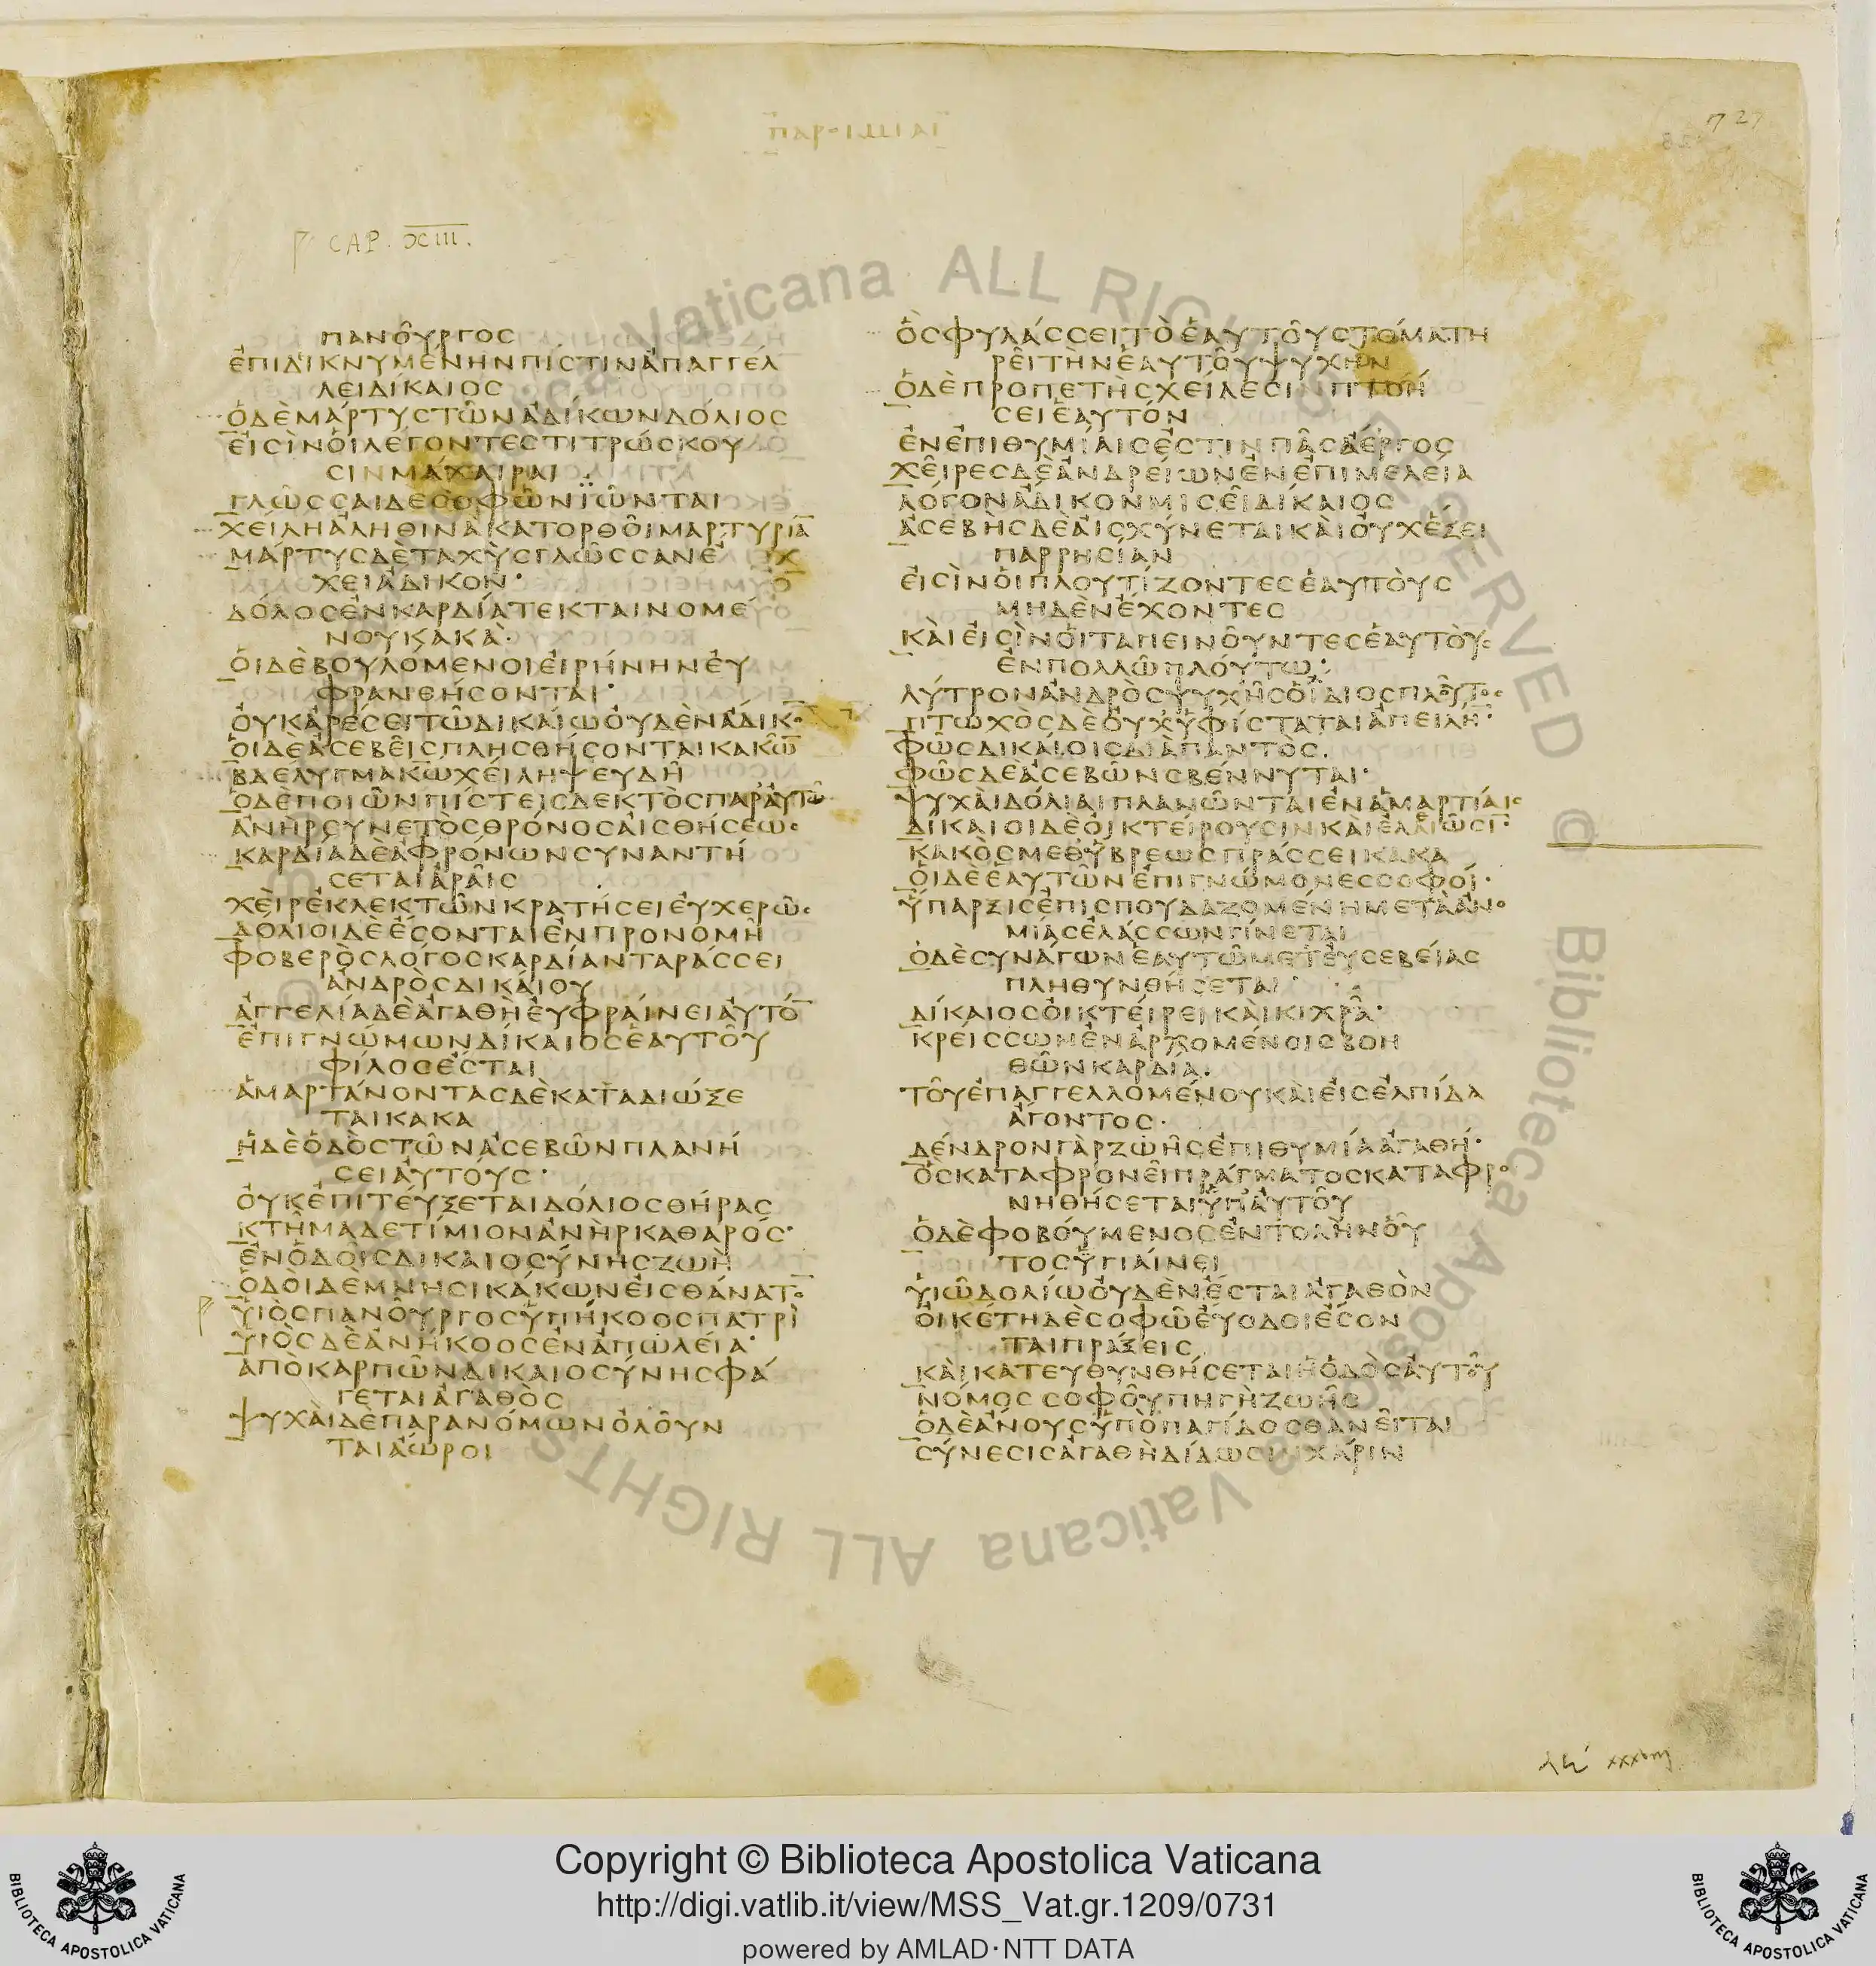 ΠΑΡΟΙΜΙΑΙ
727
CAP. XIII.
ΠΑΝΟΥΡΓΟΣ
ΕΠΙΔΙΚΝΥΜΕΝΗΝΠΙΣΤΙΝΑΠΑΓΓΕΛ
ΛΕΙΔΙΚΑΙΟΣ
ΟΔΕΜΑΡΤΥΣΤΩΝΑΔΙΚΩΝΔΟΛΙΟΣ
ΕΙΣΙΝΟΙΛΕΓΟΝΤΕΣΤΙΤΡΩΣΚΟΥ
ΣΙΝΜΑΧΑΙΡΑΙ
ΓΛΩΣΣΑΙΔΕΣΟΦΩΝΙΩΝΤΑΙ
ΧΕΙΛΗΑΛΗΘΙΝΑΚΑΤΟΡΘΟΙΜΑΡΤΥΡΙΑ̅
ΜΑΡΤΥΣΔΕΤΑΧΥΣΓΛΩΣΣΑΝΕ Χ
ΧΕΙΑΔΙΚΟΝ·
ΔΟΛΟΣΕΝΚΑΡΔΙΑΤΕΚΤΑΙΝΟΜΕ
ΝΟΥΚΑΚΑ·
ΟΙΔΕΒΟΥΛΟΜΕΝΟΙΕΙΡΗΝΗΝΕΥ
ΦΡΑΝΘΗΣΟΝΤΑΙ·
ΟΥΚΑΡΕΣΕΙΤΩΔΙΚΑΙΩΟΥΔΕΝΑΔΙΚΟ̅
ΟΙΔΕΑΣΕΒΕΙΣΠΛΗΣΘΗΣΟΝΤΑΙΚΑΚΩ̅
ΒΔΕΛΥΓΜΑΚΩ̅ΧΕΙΛΗΨΕΥΔΗ
ΟΔΕΠΟΙΩΝΠΙΣΤΕΙΣΔΕΚΤΟΣΠΑΡΑΥΤΩ
ΑΝΗΡΣΥΝΕΤΟΣΘΡΟΝΟΣΑΙΣΘΗΣΕΩΣ
ΚΑΡΔΙΑΔΕΑΦΡΟΝΩΝΣΥΝΑΝΤΗ
ΣΕΤΑΙΑΡΑΙΣ
ΧΕΙΡΕΚΛΕΚΤΩΝΚΡΑΤΗΣΕΙΕΥΧΕΡΩΣ
ΔΟΛΙΟΙΔΕΕΣΟΝΤΑΙΕΝΠΡΟΝΟΜΗ
ΦΟΒΕΡΟΣΛΟΓΟΣΚΑΡΔΙΑΝΤΑΡΑΣΣΕΙ
ΑΝΔΡΟΣΔΙΚΑΙΟΥ
ΑΓΓΕΛΙΑΔΕΑΓΑΘΗΕΥΦΡΑΙΝΕΙΑΥΤΟ̅
ΕΠΙΓΝΩΜΩΝΔΙΚΑΙΟΣΕΑΥΤΟΥ
ΦΙΛΟΣΕΣΤΑΙ
ΑΜΑΡΤΑΝΟΝΤΑΣΔΕΚΑΤΑΔΙΩΞΕ
ΤΑΙΚΑΚΑ
ΗΔΕΟΔΟΣΤΩΝΑΣΕΒΩΝΠΛΑΝΗ
ΣΕΙΑΥΤΟΥΣ·
ΟΥΚΕΠΙΤΕΥΞΕΤΑΙΔΟΛΙΟΣΘΗΡΑΣ
ΚΤΗΜΑΔΕΤΙΜΙΟΝΑΝΗΡΚΑΘΑΡΟΣ·
ΕΝΟΔΟΙΣΔΙΚΑΙΟΣΥΝΗΣΖΩΗ
ΟΔΟΙΔΕΜΝΗΣΙΚΑΚΩΝΕΙΣΘΑΝΑΤΟ̅
ΥΙΟΣΠΑΝΟΥΡΓΟΣΥΠΗΚΟΟΣΠΑΤΡΙ
ΥΙΟΣΔΕΑΝΗΚΟΟΣΕΝΑΠΩΛΕΙΑ·
ΑΠΟΚΑΡΠΩΝΔΙΚΑΙΟΣΥΝΗΣΦΑ
ΓΕΤΑΙΑΓΑΘΟΣ
ΨΥΧΑΙΔΕΠΑΡΑΝΟΜΩΝΟΛΟΥΝ
ΤΑΙΑΩΡΟΙ
ΟΣΦΥΛΑΣΣΕΙΤΟΕΑΥΤΟΥΣΤΟΜΑΤΗ
ΡΕΙΤΗΝΕΑΥΤΟΥΨΥΧΗΝ
ΟΔΕΠΡΟΠΕΤΗΣΧΕΙΛΕΣΙΝΠΤΟΗ
ΣΕΙΕΑΥΤΟΝ
ΕΝΕΠΙΘΥΜΙΑΙΣΕΣΤΙΝΠΑΣΑΕΡΓΟΣ
ΧΕΙΡΕΣΔΕΑΝΔΡΕΙΩΝΕΝΕΠΙΜΕΛΕΙΑ
ΛΟΓΟΝΑΔΙΚΟΝΜΙΣΕΙΔΙΚΑΙΟΣ
ΑΣΕΒΗΣΔΕΑΙΣΧΥΝΕΤΑΙΚΑΙΟΥΧΕΞΕΙ
ΠΑΡΡΗΣΙΑΝ
ΕΙΣΙΝΟΙΠΛΟΥΤΙΖΟΝΤΕΣΕΑΥΤΟΥΣ
ΜΗΔΕΝΕΧΟΝΤΕΣ
ΚΑΙΕΙΣΙΝΟΙΤΑΠΕΙΝΟΥΝΤΕΣΕΑΥΤΟΥΣ
ΕΝΠΟΛΛΩΠΛΟΥΤΩ·
ΛΥΤΡΟΝΑΝΔΡΟΣΨΥΧΗΣΟΙΔΙΟΣΠΛΟΥΤΟΣ
ΠΤΩΧΟΣΔΕΟΥΧΥΦΙΣΤΑΤΑΙΑΠΕΙΛΗ̅·
ΦΩΣΔΙΚΑΙΟΙΣΔΙΑΠΑΝΤΟΣ.
ΦΩΣΔΕΑΣΕΒΩΝΣΒΕΝΝΥΤΑΙ·
ΨΥΧΑΙΔΟΛΙΑΙΠΛΑΝΩΝΤΑΙΕΝΑΜΑΡΤΙΑΙΣ
ΔΙΚΑΙΟΙΔΕΟΙΚΤΕΙΡΟΥΣΙΝΚΑΙΕΛΕΩΣΙ̅·
ΚΑΚΟΣΜΕΘΥΒΡΕΩΣΠΡΑΣΣΕΙΚΑΚΑ
ΟΙΔΕΕΑΥΤΩΝΕΠΙΓΝΩΜΟΝΕΣΣΟΦΟΙ·
ΥΠΑΡΞΙΣΕΠΙΣΠΟΥΔΑΖΟΜΕΝΗΜΕΤΑΑΝΟ
ΜΙΑΣΕΛΑΣΣΩΝΓΙΝΕΤΑΙ
ΟΔΕΣΥΝΑΓΩΝΕΑΥΤΩΜΕΤΕΥΣΕΒΕΙΑΣ
ΠΛΗΘΥΝΘΗΣΕΤΑΙ·
ΔΙΚΑΙΟΣΟΙΚΤΕΙΡΕΙΚΑΙΚΙΧΡΑ·
ΚΡΕΙΣΣΩΝΕΝΑΡΧΟΜΕΝΟΙΣΒΟΗ
ΘΩΝΚΑΡΔΙΑ.
ΤΟΥΕΠΑΓΓΕΛΛΟΜΕΝΟΥΚΑΙΕΙΣΕΛΠΙΔΑ
ΑΓΟΝΤΟΣ·
ΔΕΝΔΡΟΝΓΑΡΖΩΗΣΕΠΙΘΥΜΙΑΑΓΑΘΗ·
ΟΣΚΑΤΑΦΡΟΝΕΙΠΡΑΓΜΑΤΟΣΚΑΤΑΦΡΟ
ΝΗΘΗΣΕΤΑΙΥΠΑΥΤΟΥ
ΟΔΕΦΟΒΟΥΜΕΝΟΣΕΝΤΟΛΗΝΟΥ
ΤΟΣΥΓΙΑΙΝΕΙ
ΥΙΩΔΟΛΙΩΟΥΔΕΝΕΣΤΑΙΑΓΑΘΟΝ
ΟΙΚΕΤΗΔΕΣΟΦΩΕΥΟΔΟΙΕΣΟΝ
ΤΑΙΠΡΑΞΕΙΣ
ΚΑΙΚΑΤΕΥΘΥΝΘΗΣΕΤΑΙΗΟΔΟΣΑΥΤΟΥ
ΝΟΜΟΣΣΟΦΟΥΠΗΓΗΖΩΗΣ
ΟΔΕΑΝΟΥΣΥΠΟΠΑΓΙΔΟΣΘΑΝΕΙΤΑΙ
ΣΥΝΕΣΙΣΑΓΑΘΗΔΙΔΩΣΙΝΧΑΡΙΝ
Vaticana ALL RIGHTS RESERVED © Biblioteca Apostolica Vaticana ALL RIGHTS
Copyright © Biblioteca Apostolica Vaticana
http://digi.vatlib.it/view/MSS_Vat.gr.1209/0731
powered by AMLAD·NTT DATA
BIBLIOTECA APOSTOLICA VATICANA
BIBLIOTECA APOSTOLICA VATICANA